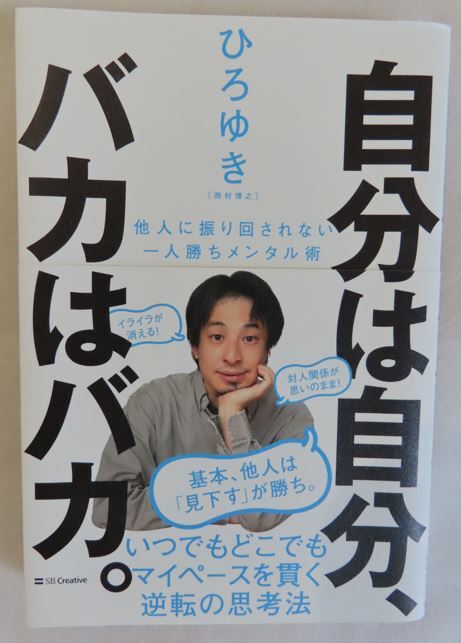 自分は自分、
バカはバカ。
ひろゆき
[西村博之]
他人に振り回されない
一人勝ちメンタル術
イライラが
消える!
対人関係が
思いのまま!
基本、他人は
「見下す」が勝ち。
いつでもどこでも
マイペースを貫く
逆転の思考法
SB Creative